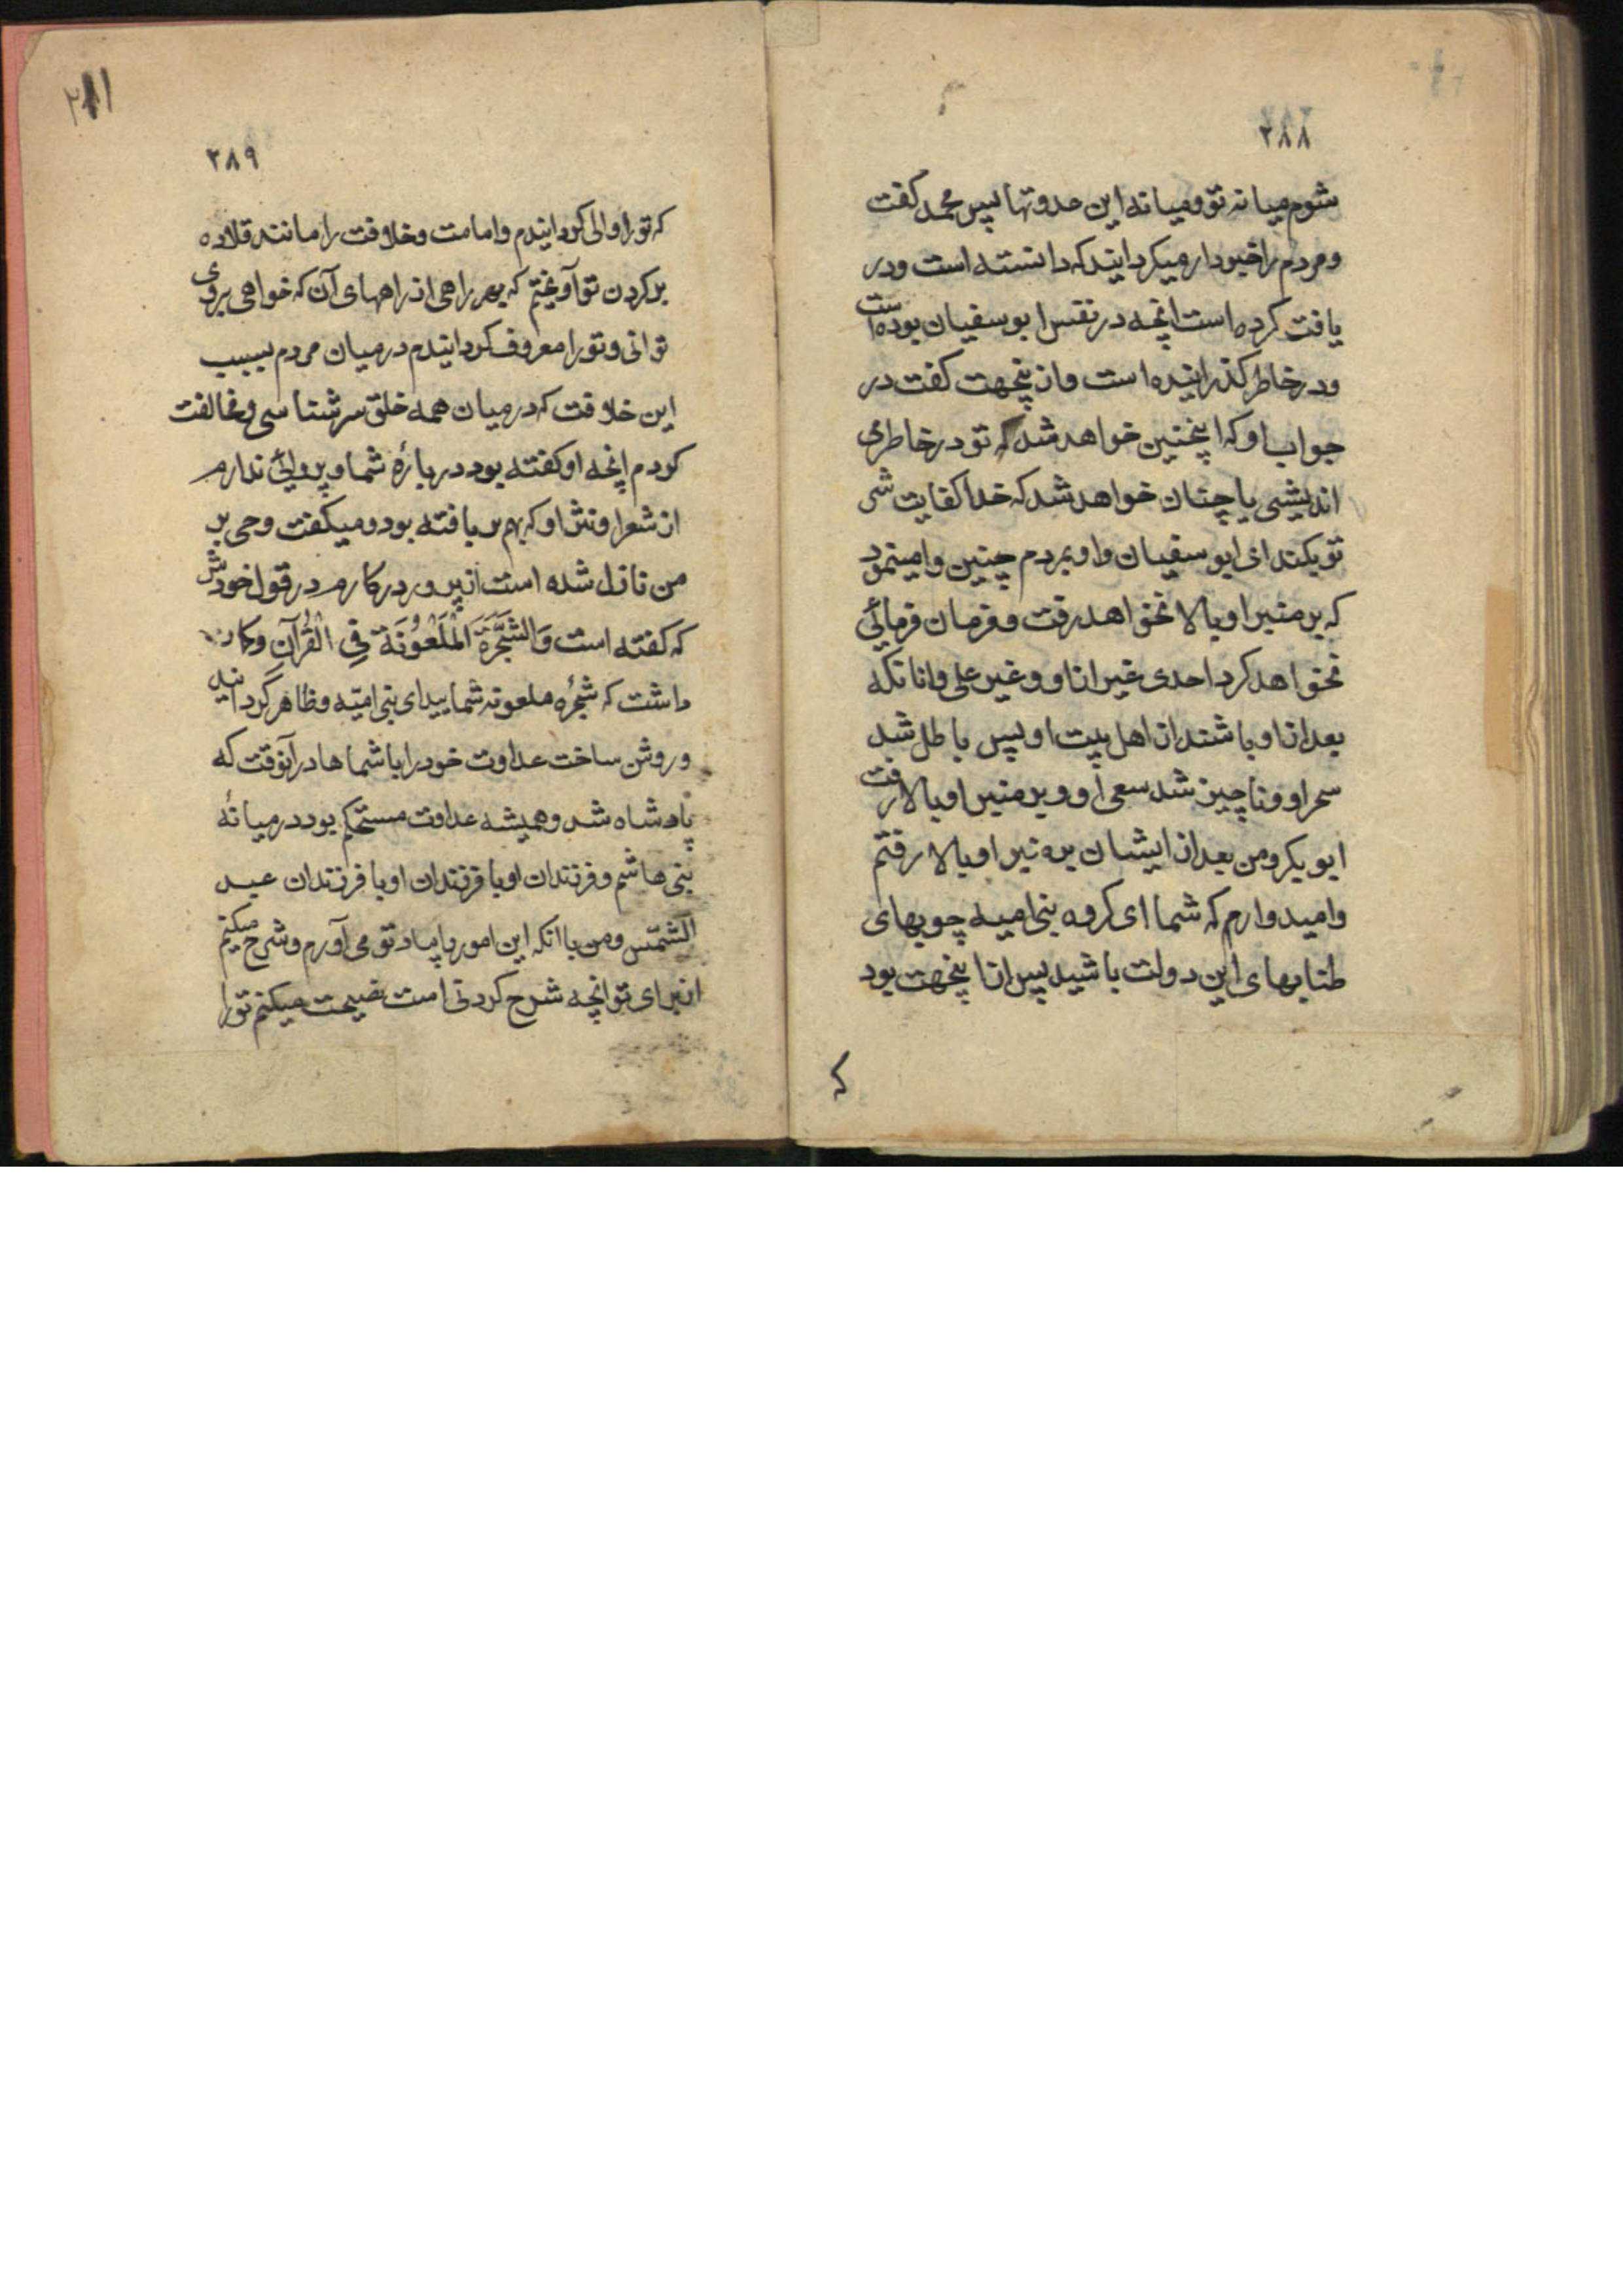 ۲۸۸
شوم میانه تو و میانه این حدوتها پس محمد کفت
و مردم را خبردار میکردانید که دانسته است و در
یافت کرده است انچه در نفس ابو سفیان بوده است
و در خاطر کذرانیده است و از ینجهت کفت در
جواب او که اینچنین خواهد شد که تو در خاطر می
اندیشی یا چنان خواهد شد که خدا کفایت شر
تو بکند ای ابو سفیان و او بمردم چنین وامینمود
که بر منبر او بالا نخواهد رفت و فرمان فرمائی
نخواهد کرد احدی غیر از او و غیر علی و انانکه
بعد از او باشند از اهل بیت او پس باطل شد
سحر او و ناچیز شد سعی او و بر منبر او بالا رفت
ابو بکر و من بعد از ایشان بر منبر او بالا رفتم
و امیدوارم که شما ای کروه بنی امیه چوبهای
طنابهای این دولت باشید پس از اینجهت بود
که
۲۱۱
۲۸۹
که تو را والی کردانیدم و امامت و خلافت را مانند قلاده
بر کردن تو آویختم که بهر راهی از راههای آن که خواهی بروی
توانی و تو را معروف کردانیدم در میان مردم بسبب
این خلافت که در میان همه خلق سرشناسی و مخالفت
کردم انچه او کفته بود در بارۀ شما و پروائی ندارم
از شعر او و نثر او که بهم بر بافته بود و میکفت وحی بر
من نازل شده است از پروردکارم در قول خودش
که کفته است وَالشَّجَرَةَ الْمَلْعُونَةَ فِی الْقُرآنِ و کمان
داشت که شجرۀ ملعونه شمایید ای بنی امیّه و ظاهر گردانید
و روشن ساخت عداوت خود را با شماها در آنوقت که
پادشاه شد و همیشه عداوت مستحکم بود در میانۀ
بنی هاشم و فرزندان او با فرزندان عبد
الشّمس و من با انکه این امور را بیاد تو می آورم و شرح میکنم
از برای تو انچه شرح کردنی است نصیحت میکنم تو را